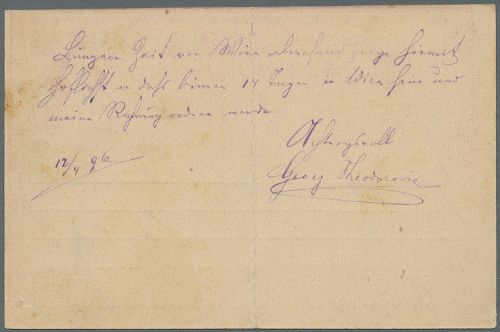 Längere Zeit von Wien abwesend zeige hiermit
höflichst an daß binnen 14 Tagen in Wien sein und
meine Rechnung ordnen werde
Achtungsvoll
12/4 96
Georg Theodorovic